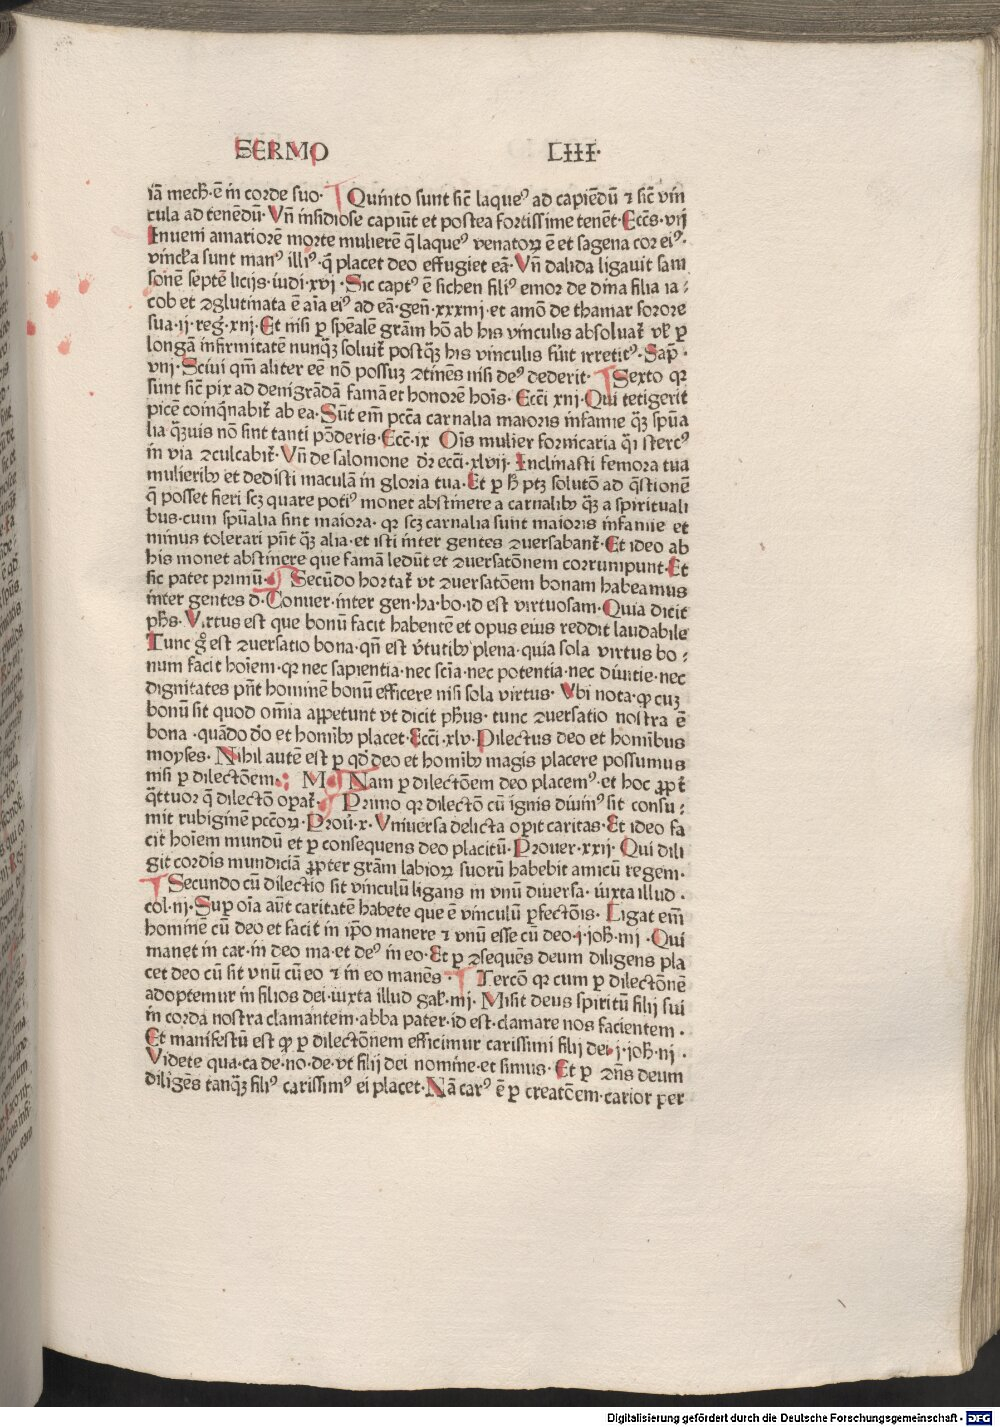 SERMO LIII·
iā mech̄·ē in corde suo· Quinto sunt sic̄ laque⁹ ad capiēdū ⁊ sic̄ vin
cula ad tenēdū· Vn̄ insidiose capiūt et postea fortissime tenēt·Ecc̄s·vij
Inueni amariorē morte mulierē q̄ laque⁹ venatoꝝ ē et sagena cor ei⁹·
vincła sunt man⁹ illi⁹·q̄ placet deo effugiet eā·Vn̄ dalida ligauit sam
sonē septē licijs·iudi·xvj·Sic capt⁹ ē sichen fili⁹ emor de dīna filia ia⸗
cob et ꝯglutinata ē aīa ei⁹ ad eā·gen̄·xxxiiij·et amō de thamar sorore
sua·ij·reḡ·xiij·Et nisi ꝑ spēalē grām hō ab his vinculis absoluat᷑ vł ꝑ
longā infirmitatē nunqꝫ soluit᷑ postqꝫ his vinculis fūit irretit⁹·Sap̄·
viij·Sciui qm̄ aliter eē nō possuꝫ ꝯtinēs nisi de⁹ dederit· Sexto qꝛ
sunt sic̄ pix ad denigrādā famā et honorē hoīs· Ecc̄i xiij·Qui tetigerit
picē coinq̄nabit᷑ ab ea·Sūt em̄ pcc̄a carnalia maioris infamie qꝫ spūa
lia qꝫuis nō sint tanti pōderis·Ecc̄·ix Oīs mulier fornicaria qͣi sterc⁹
in via ꝯculcabit᷑·Vn̄ de salomone dr̄ ecc̄i·xlvij·Inclinasti femora tua
mulieribꝰ et dedisti maculā in gloria tua·Et ꝑ hͦ ptꝫ solutō ad q̄stionē
q̄ posset fieri scꝫ quare poti⁹ monet abstinere a carnalibꝰ qꝫ a spirituali
bus·cum spūalia sint maiora· qꝛ scꝫ carnalia sunt maioris infamie et
minus tolerari pn̄t qꝫ alia·et isti inter gentes ꝯuersabant᷑·Et ideo ab
his monet abstinere que famā ledūt et ꝯuersatōnem corrumpunt·Et
sic patet primū· Secūdo hortat᷑ vt ꝯuersatōem bonam habeamus
inter gentes d·Conuer·inter gen·ha·bo·id est virtuosam·Quia dicit
ph̄s·Virtus est que bonū facit habentē et opus eius reddit laudabile
Tunc gͦ est ꝯuersatio bona·qn̄ est v̄tutibꝰ plena·quia sola virtus bo⸗
num facit hoīem·qꝛ nec sapientia·nec scīa·nec potentia·nec diuitie·nec
dignitates pn̄t hominē bonū efficere nisi sola virtus· Vbi nota·ꝙ cuꝫ
bonū sit quod om̄ia appetunt vt dicit ph̄us· tunc ꝯuersatio nostra ē
bona·quādo dō et homībꝰ placet·Ecc̄i·xlv·Dilectus deo et hominibus
moyses· Nihil autē est ꝑ qd̄ deo et homībꝰ magis placere possumus
nisi ꝑ dilectōem· Nam ꝑ dilectōem deo placem⁹·et hoc ꝓpt̄
q̄ttuor q̄ dilectō oꝑat᷑· Primo qꝛ dilectō cū ignis diuin⁹ sit consu⸗
mit rubiginē pcc̄oꝝ·Prou̇·x·Vniuersa delicta oꝑit caritas·Et ideo fa
cit hoīem mundū et ꝑ consequens deo placitū·Prouer·xxij·Qui dili
git cordis mundiciā ꝓpter grām labioꝝ suorū habebit amicū regem·
Secundo cū dilectio sit vinculū ligans in vnū diuersa·iuxta illud·
col·iij·Suꝑ oīa aūt caritatē habete que ē vinculū ꝑfectōis· Ligat em̄
hominē cū deo et facit in ip̄o manere ⁊ vnū esse cū deo·j·joh̄·iiij·Qui
manet in car·in deo ma·et de⁹ in eo·Et ꝑ ꝯsequēs deum diligens pla
cet deo cū sit vnū cū eo ⁊ in eo manēs· Tercō qꝛ cum ꝑ dilectōnē
adoptemur in filios dei·iuxta illud gal̄·iiij·Misit deus spiritū filij sui
in corda nostra clamantem·abba pater·id est·clamare nos facientem·
Et manifestū est ꝙ ꝑ dilectōnem efficimur carissimi filij dei·j·joh̄·iij·
Videte qua·ca·de·no·de·vt filij dei nomine·et simus· Et ꝑ ꝯn̄s deum
diligēs tanqꝫ fili⁹ carissim⁹ ei placet·Nā car⁹ ē ꝑ creatōem·carior per
Digitalisierung gefördert durch die Deutsche Forschungsgemeinschaft - DFG